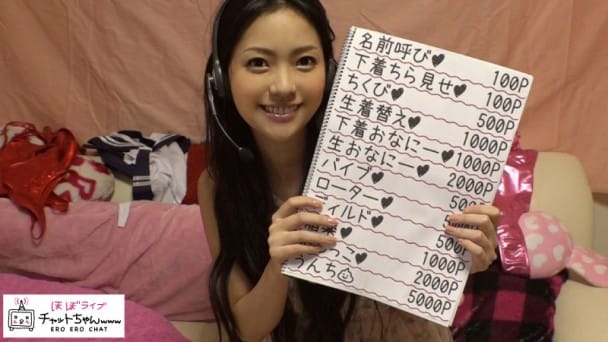 名前呼び♥ 100P
下着ちら見せ♥ 100P
ちくび♥ 500P
生着替え♥ 1000P
下着おなにー♥ 1000P
生おなにー♥ 2000P
バイブ♥
ローター♥
500P
1000P
2000P
うんち 5000P
ほぼライブ
チャットちゃんwww
ERO ERO CHAT